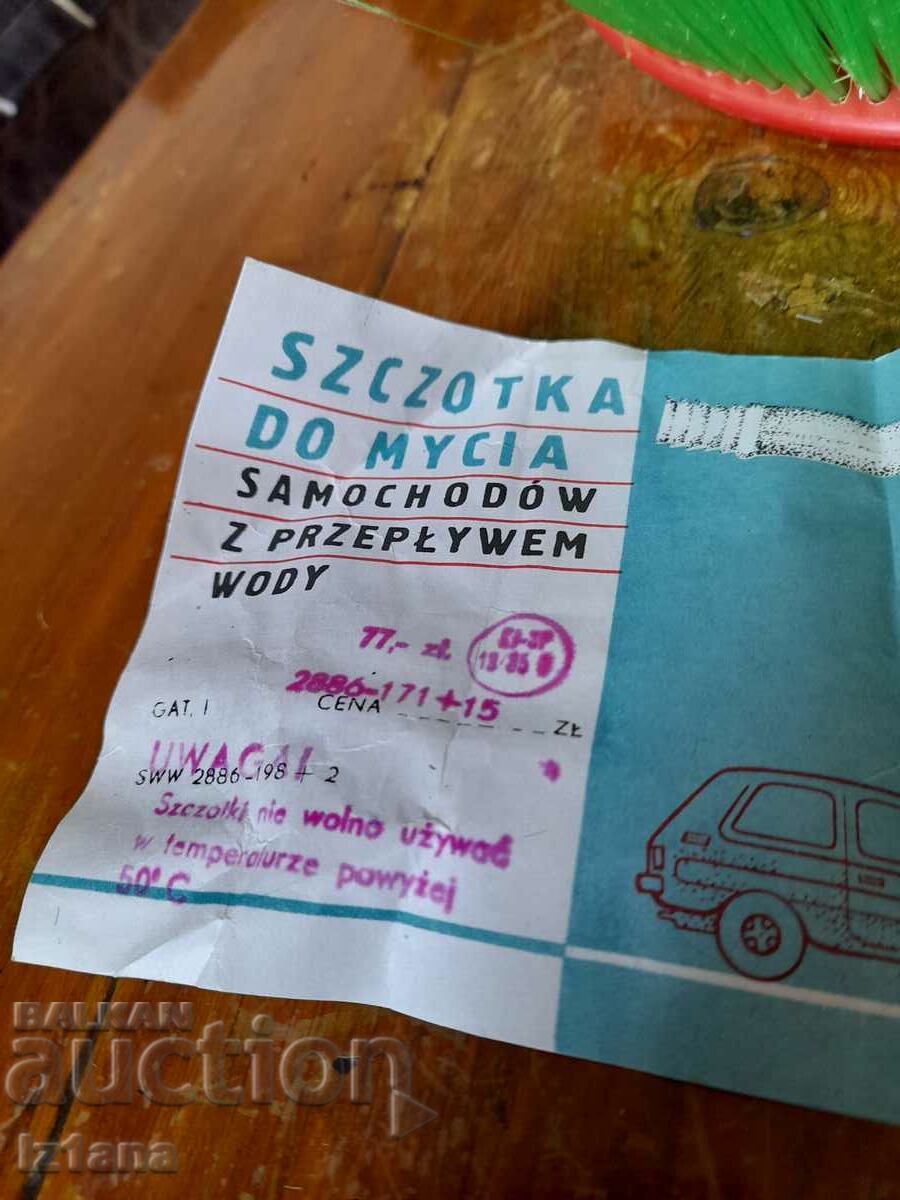 SZCZOTKA
DO MYCIA
SAMOCHODÓW
Z PRZEPŁYWEM
WODY
77,- zł.
2886-171+15
GAT. I CENA ZŁ
UWAGA!
SWW 2886-198 + 2
Szczotki nie wolno używać
w temperaturze powyżej
50°C
BALKAN
auction
Iz1ana